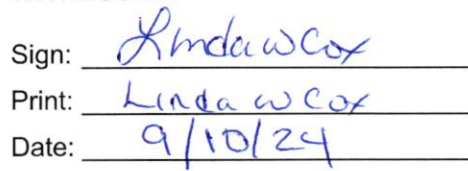 Sign: Linda W Cox
Print: Linda W Cox
Date: 9/10/24